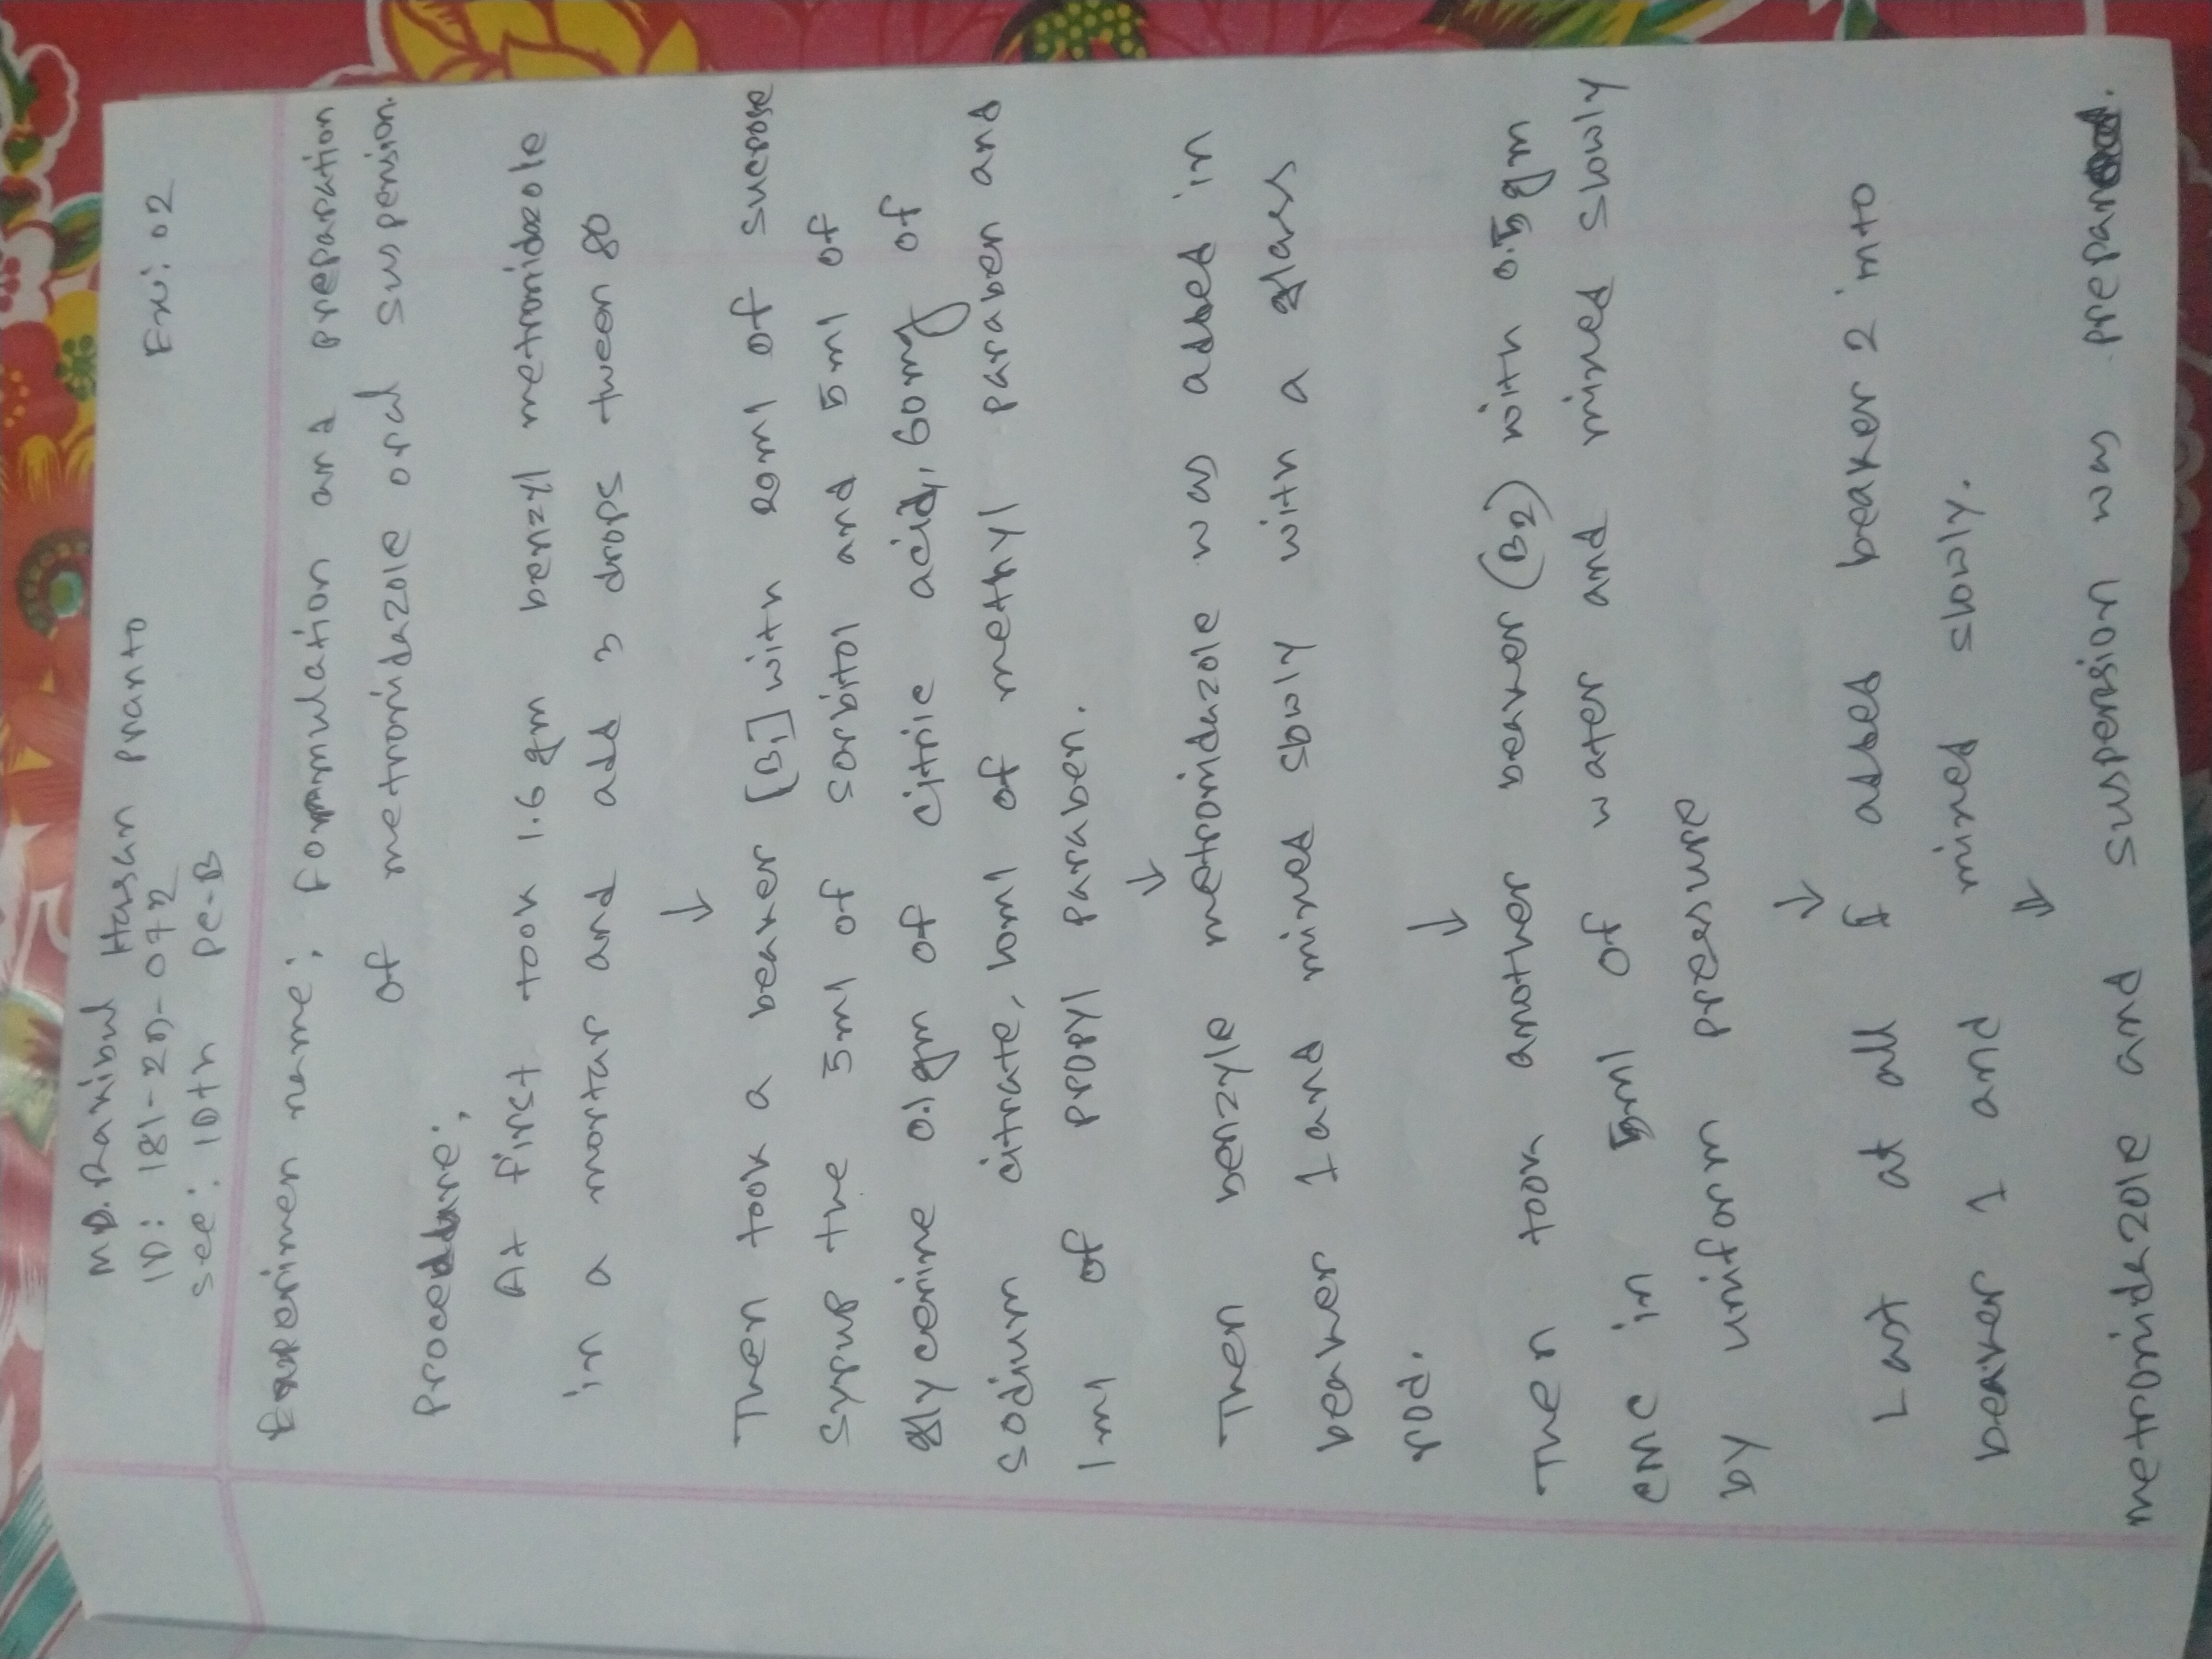 MD. Rakibul Hasan Pranto
ID: 181-29-072
Ex: 02
sec: 10th PC-B
Experimen name: Formmulation and preparation
of metronidazole oral suspension.
Procedure:
At first took 1.6 gm benzyl metronidazole
in a mortar and add 3 drops tween 80
↓
Then took a beaker [B1] with 20ml of sucrose
syrup the 5ml of sorbitol and 5ml of
glycerine 0.1gm of citric acid, 60mg of
sodium citrate, 10ml of methyl paraben and
1ml of propyl paraben.
↓
Then benzyle metronidazole was added in
beaker 1 and mixed slowly with a glass
rod.
↓
Then took another beaker (B2) with 0.5gm
cmc in 5ml of water and mixed slowly
by uniform pressure
↓
Last at all I added beaker 2 into
beaker 1 and mixed slowly.
↓
metronidazole and suspension was prepared.